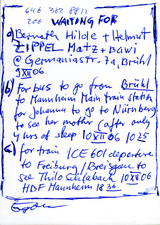 646 382 8812
206 WAITING FOR
a) Hilde + Helmut
ZIPPEL Matz + Bawi
@ Germaniastr. 7a, Brühl
9 XII 06
b) for bus to go from Brühl
to Mannheim Main train station
for Johanna to go to Nürnberg
to see her mother (after only
4 hrs of sleep 10 XII 06 10 25
c) for train ICE 601 departure
to Freiburg / Breisgau to
see Thilo 10 XII 06
HBF Mannheim 18 36